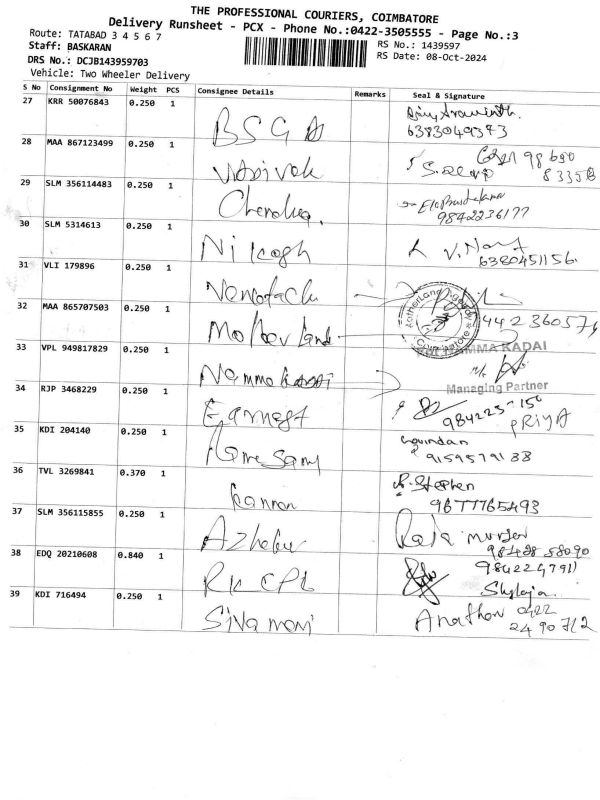 THE PROFESSIONAL COURIERS, COIMBATORE
Delivery Runsheet - PCX - Phone No.:0422-3505555 - Page No.:3
Route: TATABAD 3 4 5 6 7
RS No.: 1439597
Staff: BASKARAN
RS Date: 08-Oct-2024
DRS No.: DCJB143959703
Vehicle: Two Wheeler Delivery
S No Consignment No Weight PCS Consignee Details Remarks Seal & Signature
27 KRR 50076843 0.250 1 BSGA
6383049373
28 MAA 867123499 0.250 1
29 SLM 356114483 0.250 1
9842236177
30 SLM 5314613 0.250 1 V. Nan
6380451156.
31 VLI 179896 0.250 1
32 MAA 865707503 0.250 1 Mother Land
442360574
33 VPL 949817829 0.250 1 Namma KADAI
NAMMA KADAI
Managing Partner
34 RJP 3468229 0.250 1 Earnest
PRIYA
35 KDI 204140 0.250 1 Rame Samy Govindan
9159579138
36 TVL 3269841 0.370 1 Kannan R. Stephen
9677765493
37 SLM 356115855 0.250 1
38 EDQ 20210608 0.840 1 RK CPL
Shylaja
39 KDI 716494 0.250 1 Sivamani 0422
2490712